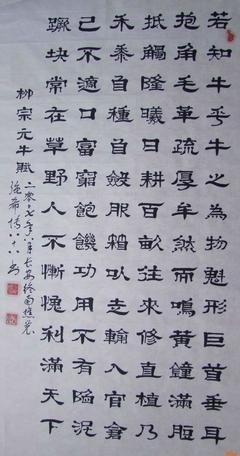 若知牛乎牛之為物魁形巨首垂耳
抱角毛革疏厚牟然而鳴黃鐘滿脰
抵觸隆曦日耕百畝往來修直植乃
禾黍自種自斂服箱以走輸入官倉
己不適口富窮飽饑功用不有陷泥
蹶块常在草野人不慚愧利滿天下
柳宗元牛賦
二零一七年八月长安终南樵
八十八